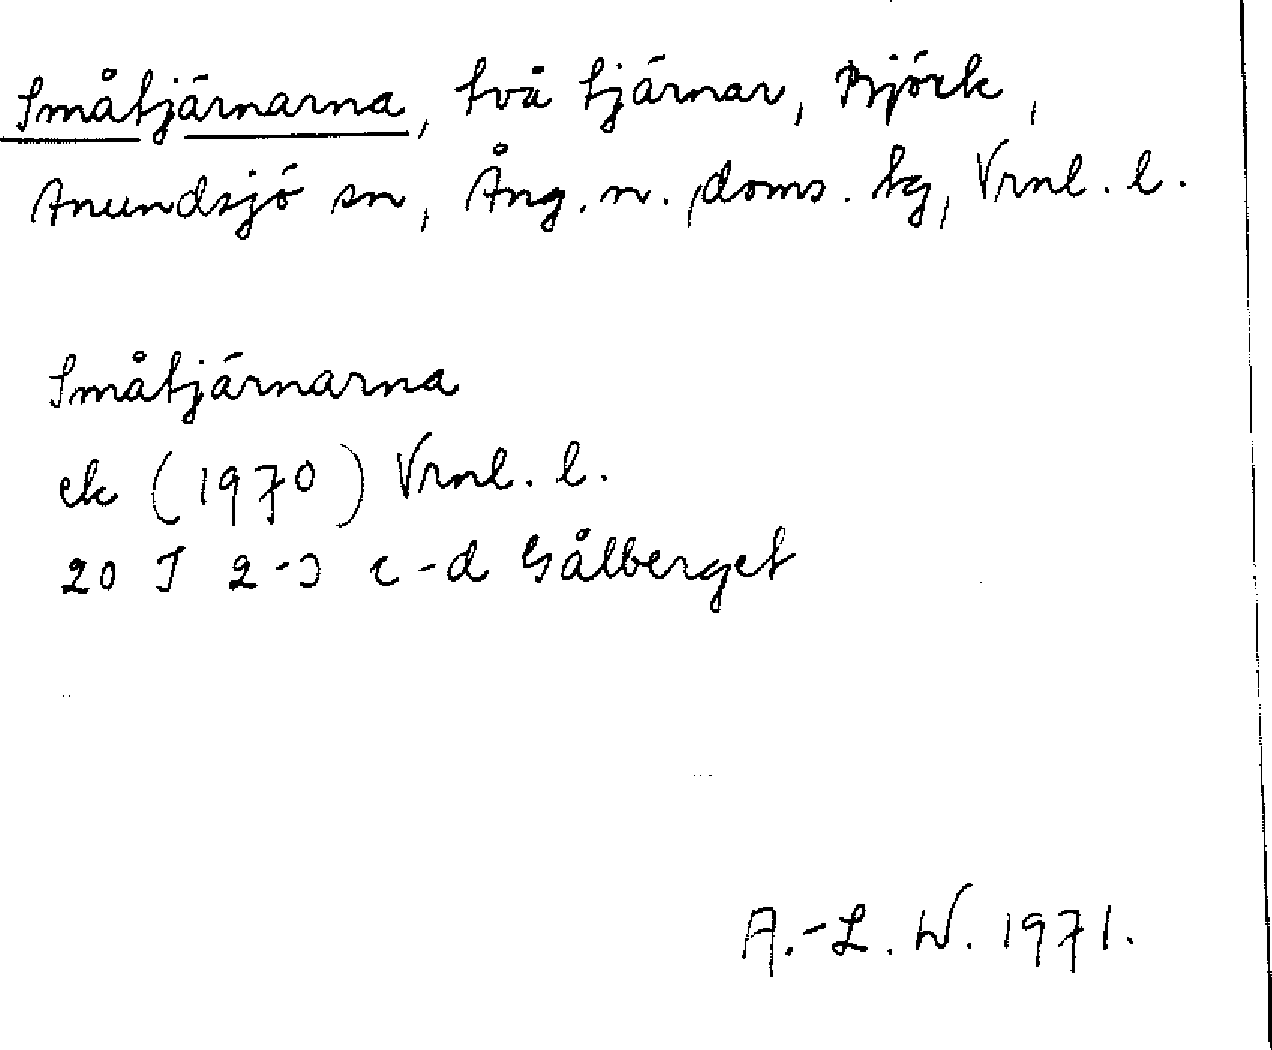 Småtjärnarna, två tjärnar, Björk,
Anundsjö sn, Ång. n. doms. tg, Vrnl. l.
Småtjärnarna
ek (1970) Vrnl. l.
20 I 2-3 c-d Gålberget
A.-L. W. 1971.